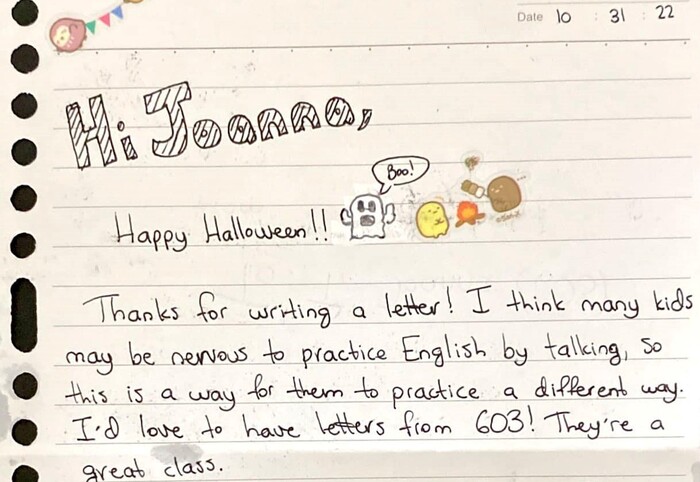 Date 10 : 31 : 22
Hi Joanna,
Boo!
Happy Halloween!!
Thanks for writing a letter! I think many kids
may be nervous to practice English by talking, so
this is a way for them to practice a different way.
I'd love to have letters from 603! They're a
great class.